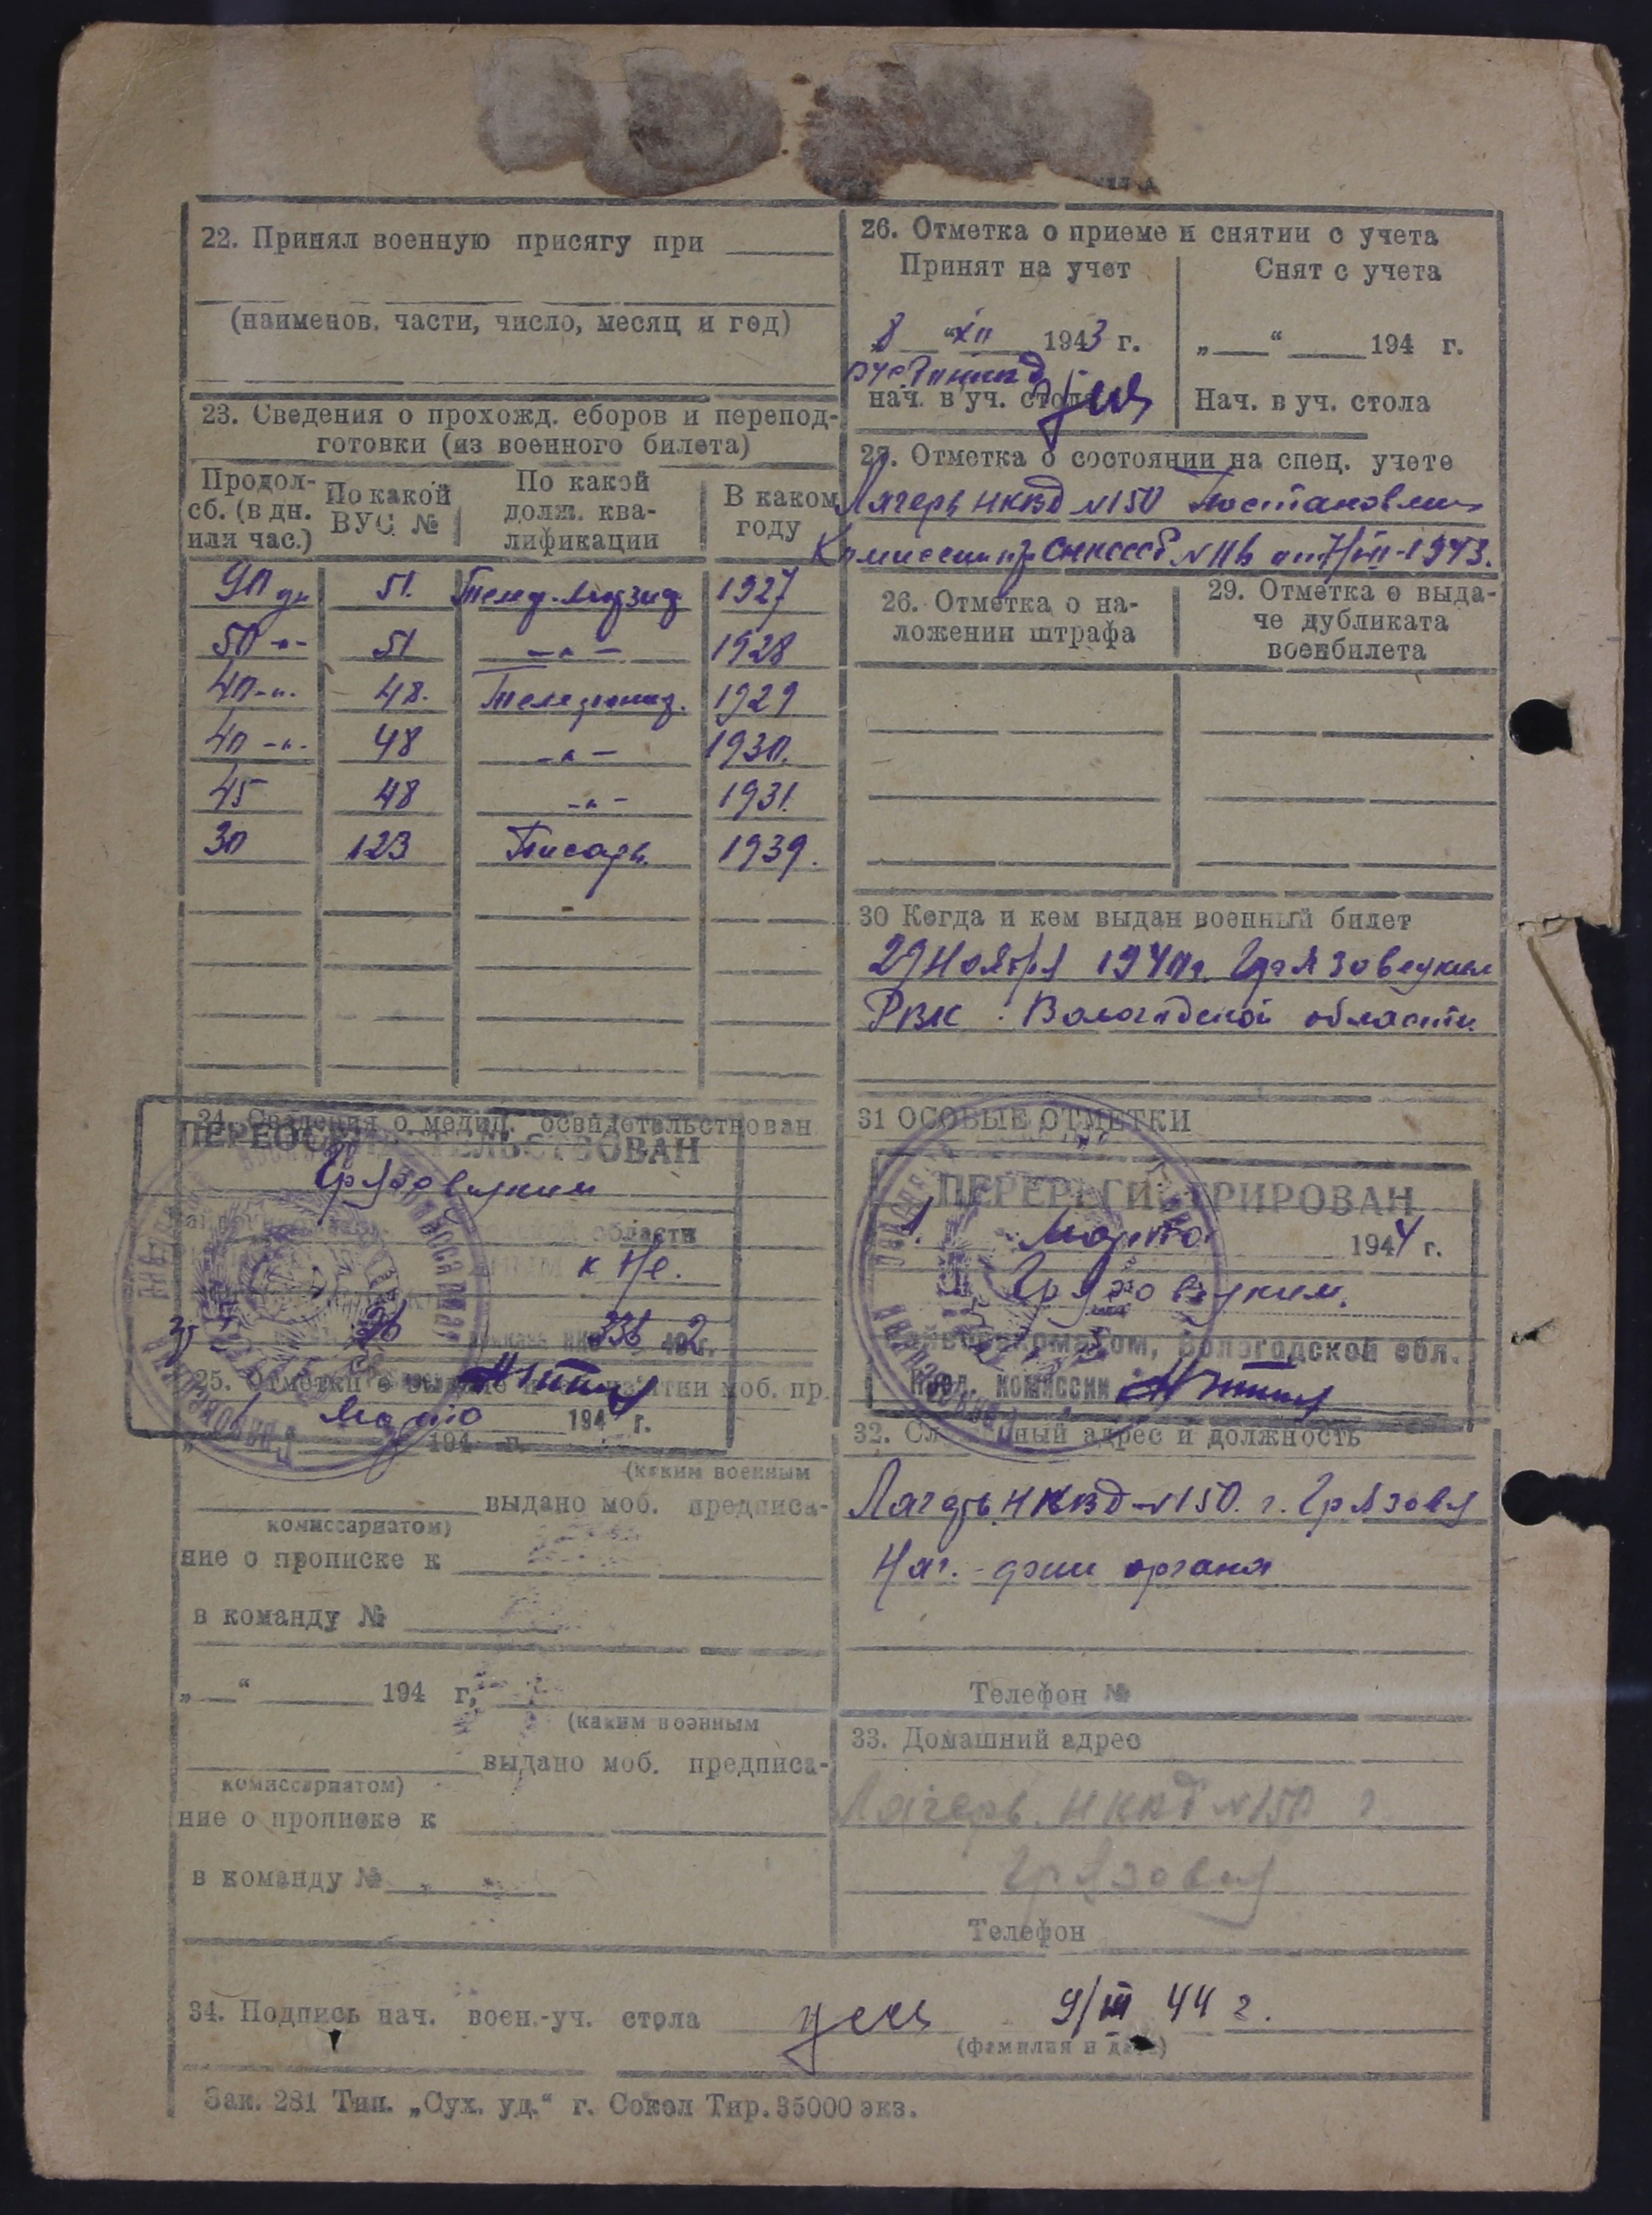 22. Принял военную присягу при
(наименов. части, число, месяц и год)
23. Сведения о прохожд. сборов и перепод-
готовки (из военного билета)
Продол-
сб. (в дн.
или час.)
По какой
ВУС №
По какой
долж. ква-
лификации
В каком
году
90 дн 51. 1927
50 -"- 51 -"- 1928
40 -"- 48. 1929
40 -"- 48 -"- 1930.
45 48 -"- 1931.
30 123 Писарь 1939.
24. Сведения о медиц. освидетельствован
ПЕРЕОСВИДЕТЕЛЬСТВОВАН
Грязовецким
области
336 2
25. Отметки о моб. пр.
Марта 194 г.
194 г.
(каким военным
выдано моб. предписа-
комиссариатом)
ние о прописке к
в команду №
„ “ 194 г,
(каким военным
выдано моб. предписа-
комиссариатом)
ние о прописке к
в команду №
26. Отметка о приеме и снятии с учета
Принят на учет
8 “ XII 1943 г.
нач. в уч. стола
Снят с учета
„ “ 194 г.
Нач. в уч. стола
27. Отметка о состоянии на спец. учете
Лагерь НКВД №150
Комиссии 1943.
26. Отметка о на-
ложении штрафа
29. Отметка о выда-
че дубликата
военбилета
30 Когда и кем выдан военный билет
29 Ноября 1940г. Грязовецким
РВК Вологодской области
31 ОСОБЫЕ ОТМЕТКИ
ПЕРЕРЕГИСТРИРОВАН
1. Марта 1944 г.
Грязовецким.
Райвоенкоматом, Вологодской обл.
Пред. комиссии
32. Служебный адрес и должность
Лагерь НКВД №150. г. Грязовец
Нач. органа
Телефон №
33. Домашний адрес
Лагерь НКВД №150 г.
Грязовец
Телефон
34. Подпись нач. воен.-уч. стола 9/III 44 г.
(фамилия и дата)
Зак. 281 Тип. „Сух. уд.“ г. Сокол Тир. 35000 экз.